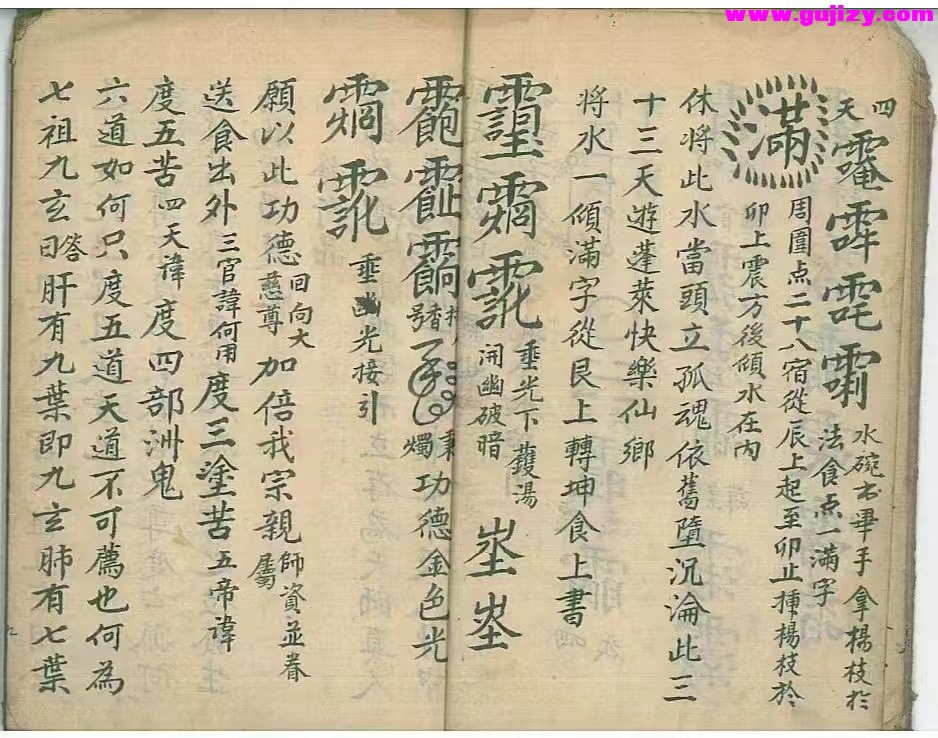 www.gujizy.com
四天
水碗书畢手拿楊枝於
法食点一滿字
滿
周圍点二十八宿從辰上起至卯止揷楊枝於
卯上震方後傾水在內
休將此水當頭立孤魂依舊墮沉淪此三
十三天遊蓬萊快樂仙鄉
將水一傾滿字從艮上轉坤食上書
垂光下鑊湯
開幽破暗
香
秉燭功德金色光
垂幽光接引
願以此功德回向大慈尊加倍我宗親師資並眷屬
送食出外三官諱何用度三塗苦五帝諱
度五苦四天諱度四部洲鬼
六道如何只度五道天道不可薦也何為
七祖九玄答曰肝有九葉即九玄肺有七葉